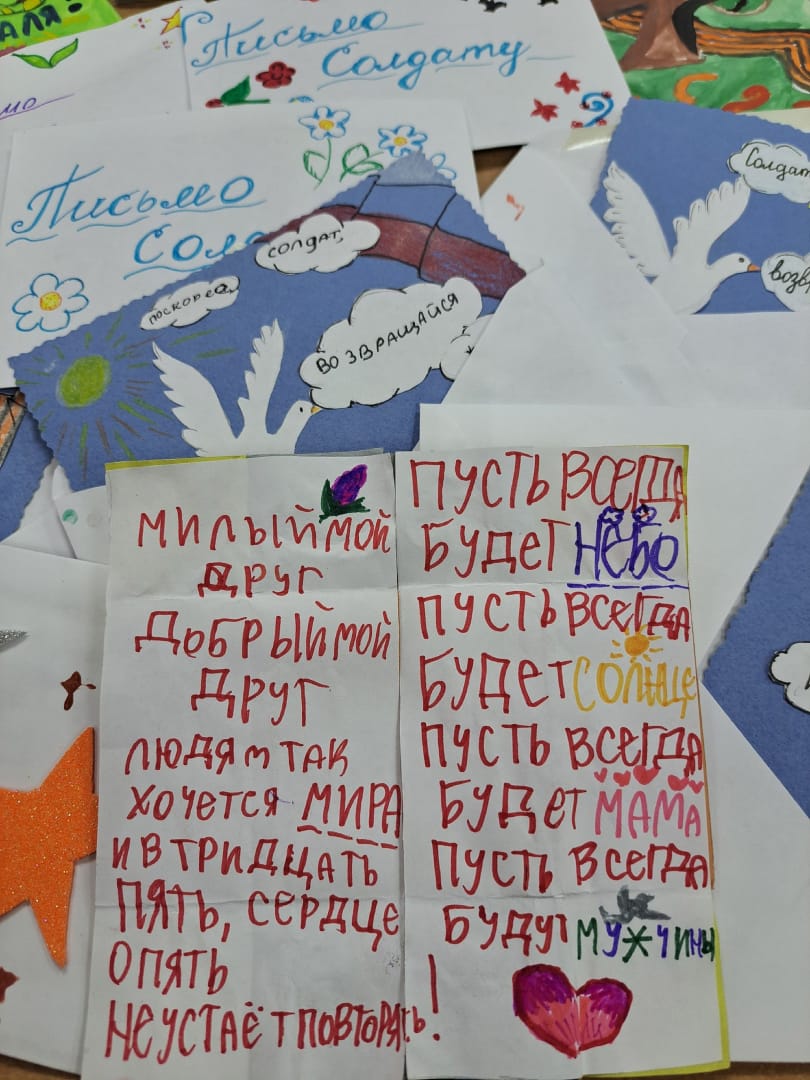 АЛЯ!
Письмо
Солдату
Письмо
Сол
поскорее,
солдат,
возвращайся
Солдат
возв
МИЛЫЙ МОЙ
ДРУГ
ДОБРЫЙ МОЙ
ДРУГ
ЛЮДЯМ ТАК
ХОЧЕТСЯ МИРА
И В ТРИДЦАТЬ
ПЯТЬ, СЕРДЦЕ
ОПЯТЬ
НЕ УСТАЁТ ПОВТОРЯТЬ!
ПУСТЬ ВСЕГДА
БУДЕТ НЕБО
ПУСТЬ ВСЕГДА
БУДЕТ СОЛНЦЕ
ПУСТЬ ВСЕГДА
БУДЕТ МАМА
ПУСТЬ ВСЕГДА
БУДУТ МУЖЧИНЫ